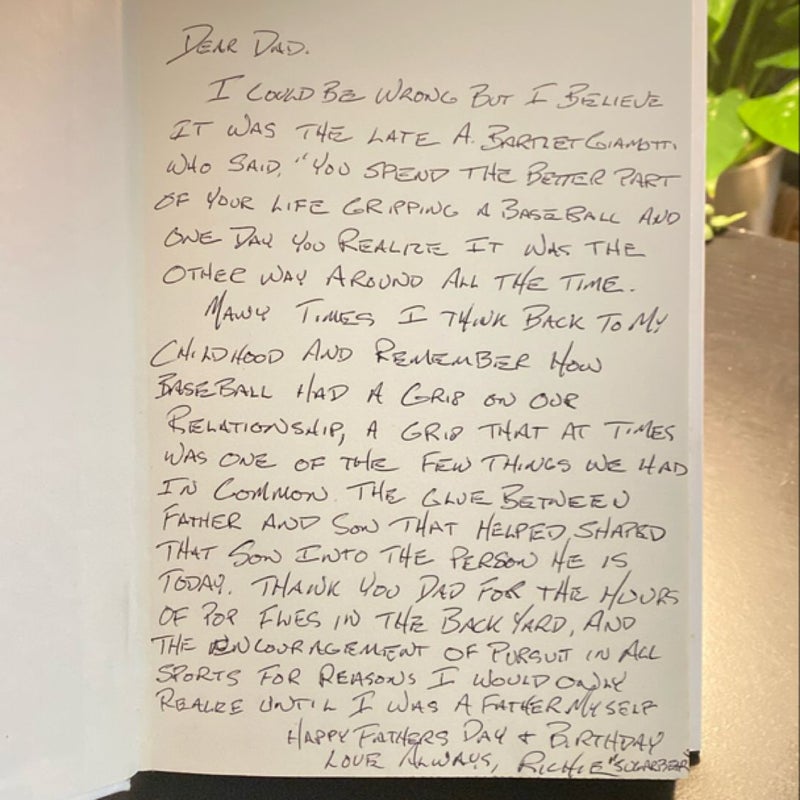 DEAR DAD.
I COULD BE WRONG BUT I BELIEVE
IT WAS THE LATE A. BARTLET GIAMOTTI
WHO SAID, "YOU SPEND THE BETTER PART
OF YOUR LIFE GRIPPING A BASEBALL AND
ONE DAY YOU REALIZE IT WAS THE
OTHER WAY AROUND ALL THE TIME.
MANY TIMES I THINK BACK TO MY
CHILDHOOD AND REMEMBER HOW
BASEBALL HAD A GRIP ON OUR
RELATIONSHIP, A GRIP THAT AT TIMES
WAS ONE OF THE FEW THINGS WE HAD
IN COMMON. THE GLUE BETWEEN
FATHER AND SON THAT HELPED SHAPED
THAT SON INTO THE PERSON HE IS
TODAY. THANK YOU DAD FOR THE HOURS
OF POP FLIES IN THE BACK YARD, AND
THE ENCOURAGEMENT OF PURSUIT IN ALL
SPORTS FOR REASONS I WOULD ONLY
REALIZE UNTIL I WAS A FATHER MYSELF
HAPPY FATHERS DAY & BIRTHDAY
LOVE ALWAYS, RICHIE "SUGARBEAR"